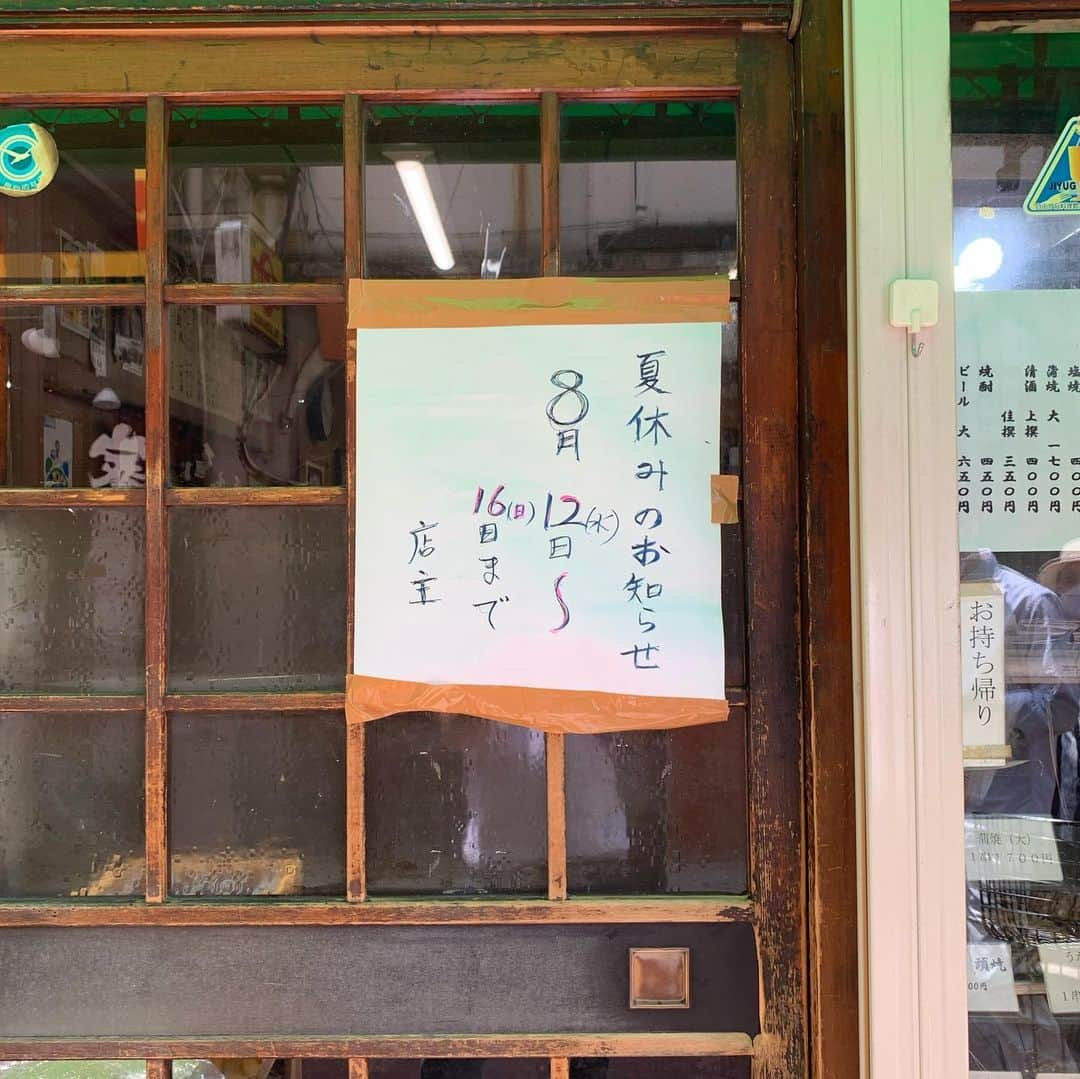 夏休みのお知らせ
8月12日(水)〜
16日(日)まで
店主
JIYUG
塩焼
蒲焼 大 一七〇〇円
清酒 上撰 四〇〇円
佳撰 三五〇円
焼酎 四五〇円
ビール 大 六五〇円
お持ち帰り
蒲焼(大)
1700円
頭焼
00円
1串